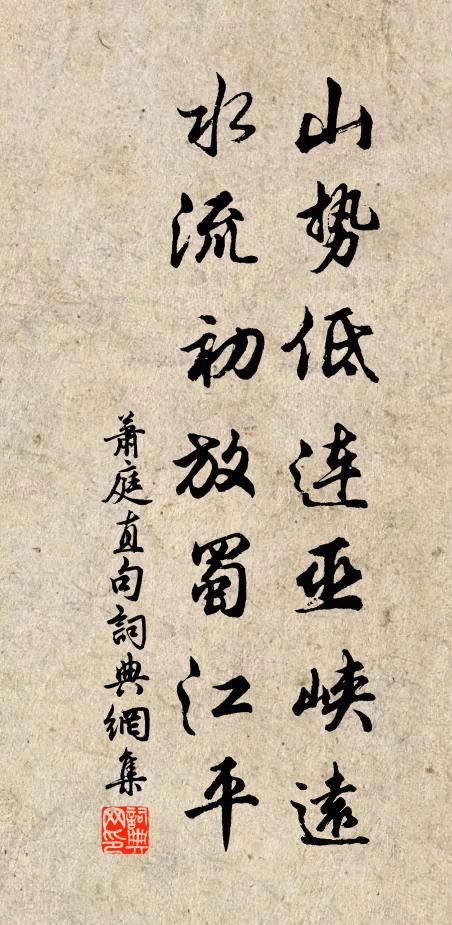 山势低連巫峡遠
水流初放蜀江平
萧庭直句詞典網集
詞典网印